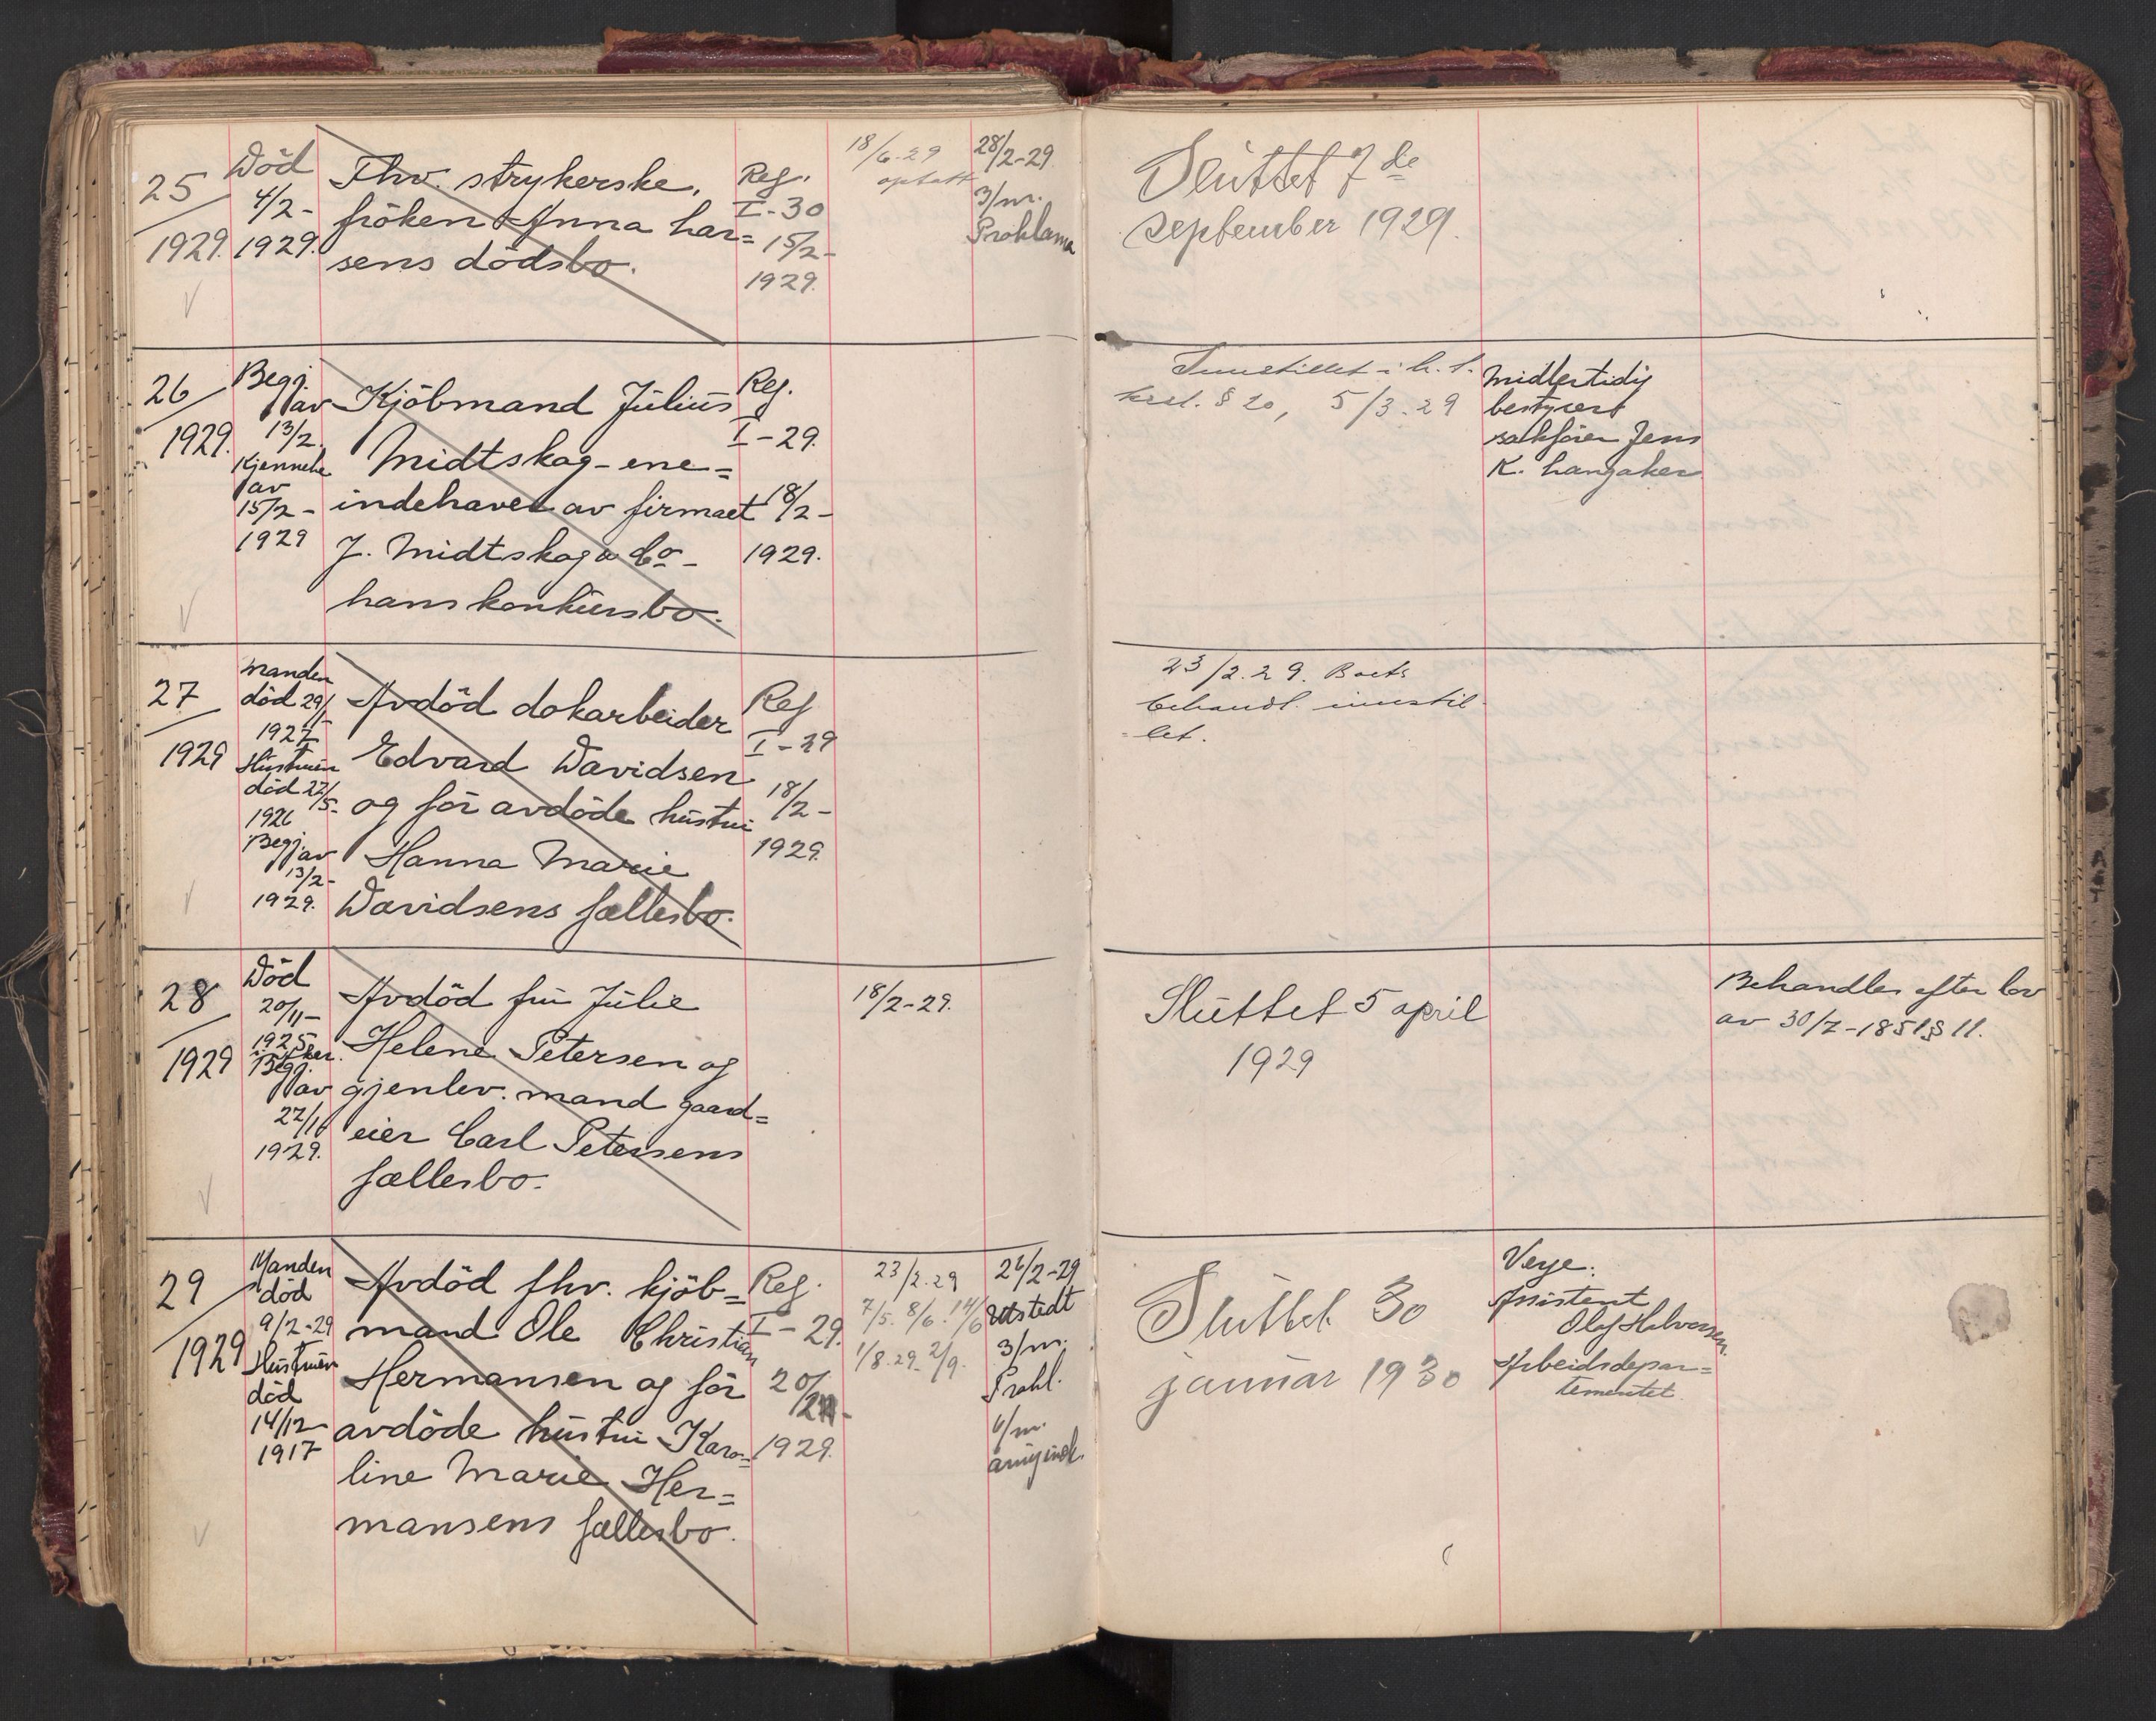 25
1929.
Död
4/2-
1929.
Fhv. strykerske,
fröken Anna Lar=
sens dödsbo.
Reg.
I-30
15/2-
1929.
18/6-29
optatt
28/2-29
3/m.
Proklama
Sluttet 7de
september 1929.
26
1929.
Begj.
av
13/2.
Kjennelse
av
15/2-
1929
Kjöbmand Julius
Midtskog-ene=
indehaver av firmaet
J. Midtskog & Co-
hans konkursbo.
Reg.
I-29.
18/2-
1929.
Innstillet i h. t.
§ 20, 5/3.29
Midlertidig
bestyrer
sakförer Jens
K. Langaker
27
1929
Manden
död 29/1-
1927
Hustruen
död 22/5-
1926
Begj av
13/2-
1929.
Avdöd dokarbeider
Edvard Davidsen
og för avdöde hustru
Hanna Marie
Davidsens fællesbo.
Reg
I-29
18/2-
1929.
23/2.29. Boets
behandl. innstil-
=let.
28
1929
Död
20/11-
1925
Begj.
av
1929.
Avdöd fru Julie
Helene Petersen og
gjenlev. mand gaard=
eier Carl Petersens
fællesbo.
18/2-29.
Sluttet 5 april
1929
Behandles efter lov
av 30/7-1851 § 11.
29
1929
Manden
död
9/2-29
Hustruen
död
14/12-
1917
Avdöd fhv. kjöb=
mand Ole Christian
Hermansen og för
avdöde hustru Karo=
line Marie Her=
mansens fællesbo.
Reg.
I-29.
20/2-
1929.
23/2.29
7/5. 8/6. 14/6
1/8.29. 2/9.
26/2-29
Utstedt
3/m.
Prokl.
6/m.
Sluttet 30
januar 1930
Verge:
Assistent
Olaf Halvorsen
Arbeidsdepar=
tementet.